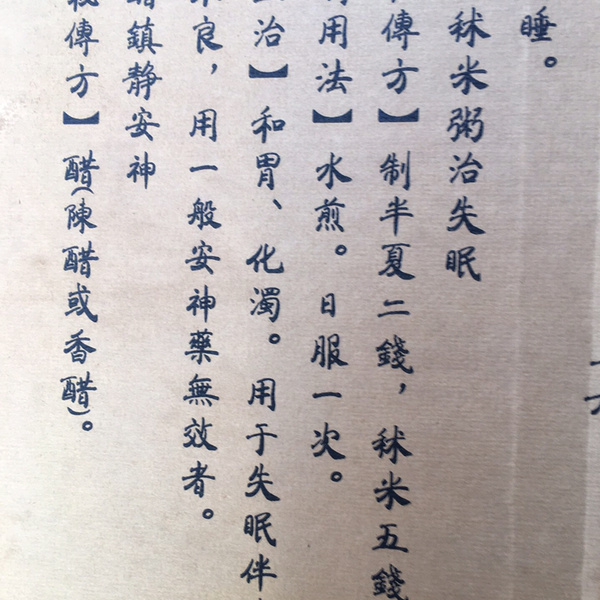 睡。
秫米粥治失眠
傳方】制半夏二錢，秫米五錢
用法】水煎。日服一次。
治】和胃、化濁。用于失眠伴
良，用一般安神藥無效者。
鎮静安神
傳方】醋(陳醋或香醋)。